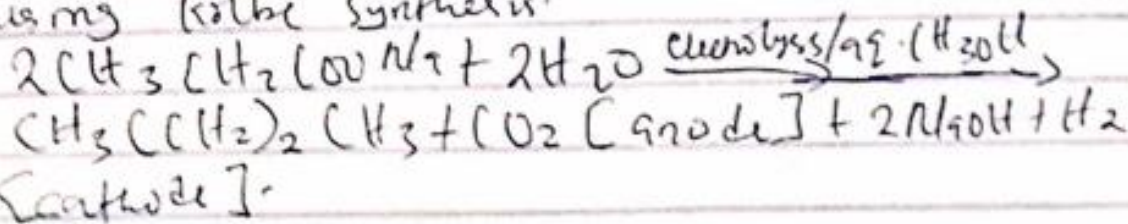 using Kolbe synthesis
2CH3CH2COONa + 2H2O electrolysis/aq. CH3OH →
CH3(CH2)2CH3 + CO2 [anode] + 2NaOH + H2
[cathode].